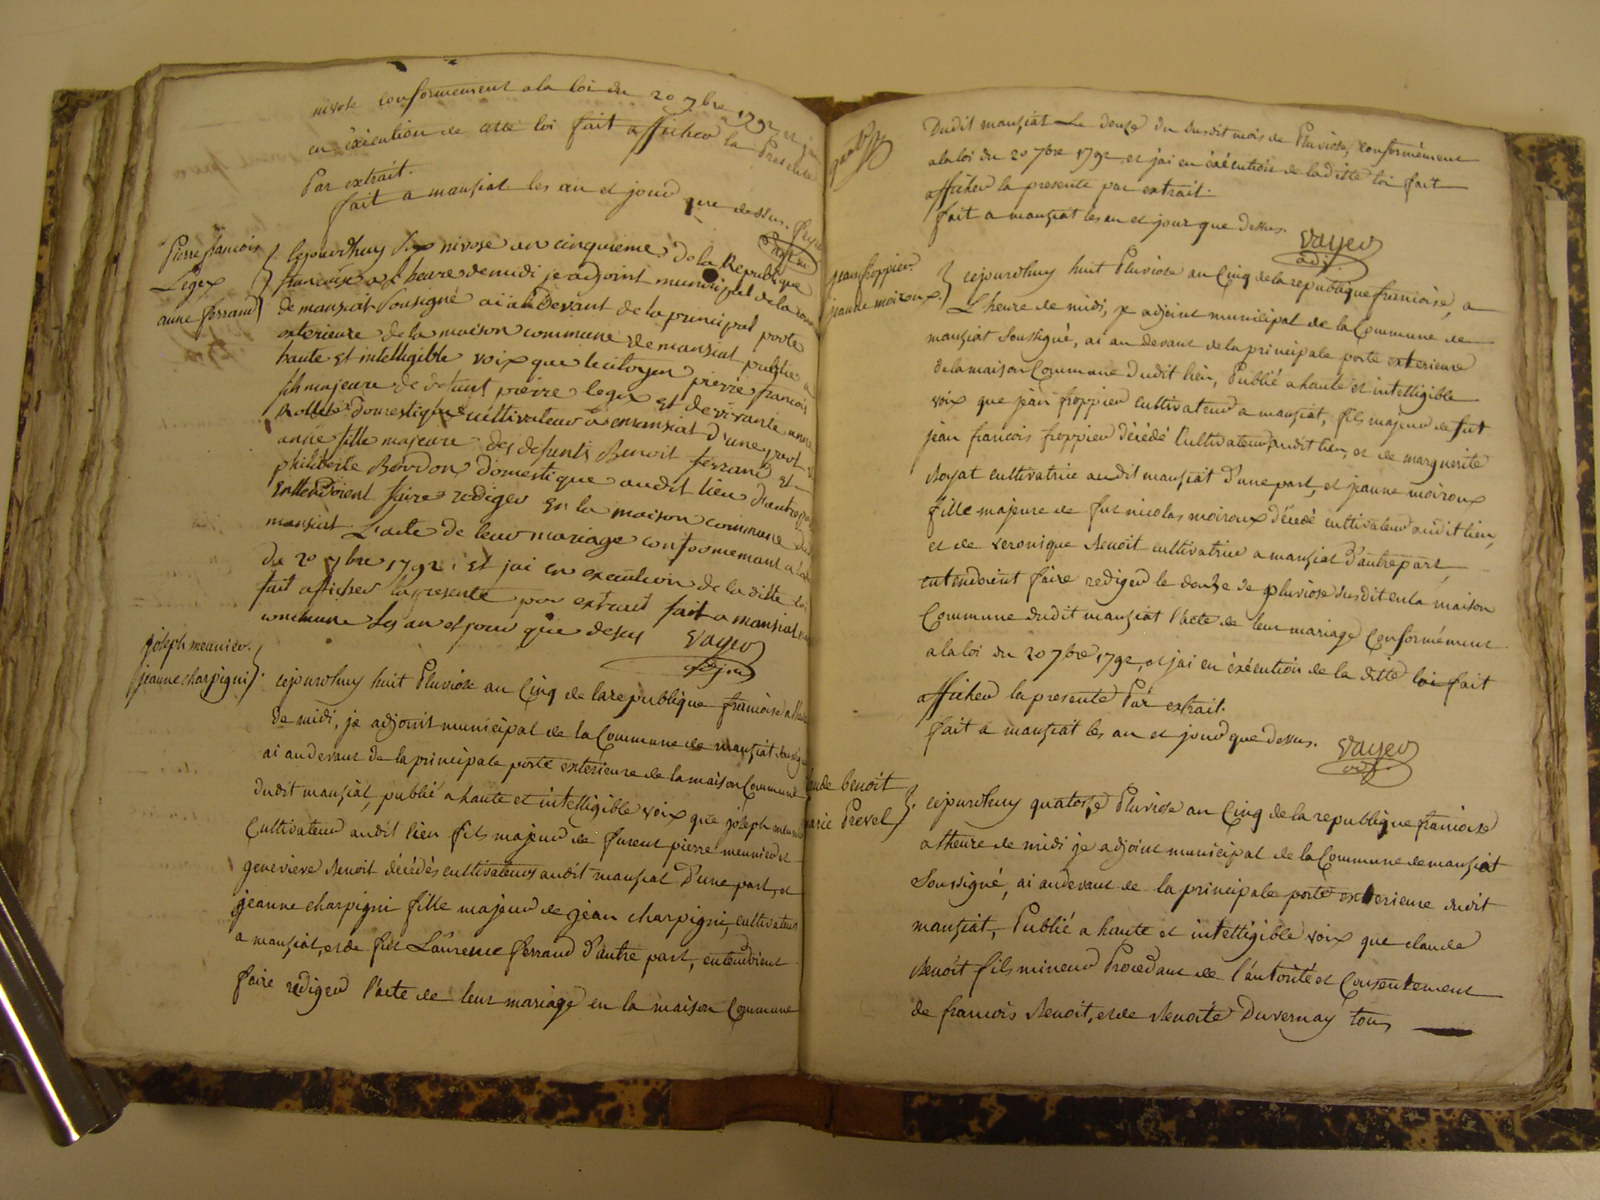 nivose conformement a la loi du 20 7bre 1792 et jai
en éxécution de cette loi fait afficher la presente
Par extrait.
fait a manziat les an et jour que dessus.
Pierre françois
Legex
anne ferrand
Cejourdhuy nivose an cinquième de la Republique
francaise a l heure de midi je adjoint municipal de la
de manziat Sousigné ai au Devant de la principal porte
exterieure de la maison commune de manziat publié a
haute et intelligible voix que le citoyen pierre francois
fils majeure de defunt pierre legex et de vivante anne
domestique cultivateur a manziat d'une part
anne fille majeure des defunts Benoit ferrand et
philiberte Bourdon domestique audit lieu d'autre part
Entendoient faire rediger En la maison commune dud
manziat L'acte de leur mariage conformement a la loi
du 20 7bre 1792 : Et jai en execution de la ditte loi
fait afficher la presente par extrait fait a manziat
commune les an et jour que desus
Vayer
adj
joseph meunier.
jeanne charpigni
cejourdhuy huit Pluviose an Cinq de la republique francoise a l heure
De midi, je adjoint municipal de la Commune de manziat Sousigné
ai au devant de la principale porte exterieure de la maison Commune
Dudit manziat, publié a haute et intelligible voix que joseph meunier
Cultivateur audit lieu fils majeur de furent pierre meunier et
genevieve Benoit décédés cultivateurs audit manziat D'une part, et
jeanne charpigni fille majeur de jean charpigni, cultivateur
a manziat, et de fut Laurence ferrand d'autre part, entendoient
faire rediger l'acte de leur mariage en la maison Commune
Dudit manziat Le douze du susdit mois de Pluviose, Conformément
a la loi du 20 7bre 1792, et jai en éxécution de la ditte loi fait
afficher la presente par extrait.
fait a manziat les an et jour que dessus.
Vayer
adj
jean froppier.
jeanne moiroux.
cejourdhuy huit Pluviose an Cinq de la republique francoise, a
L'heure de midi, je adjoint municipal de la Commune de
manziat Soussigné, ai au devant de la principale porte exterieure
de la maison Commune dudit lieu, Publié a haute et intelligible
voix que jean froppier cultivateur a manziat, fils majeur de fut
jean francois froppier décédé Cultivateur audit lieu, et de marguerite
Boyat cultivatrice audit manziat d'une part, et jeanne moiroux
fille majeure de fut nicolas moiroux décédé cultivateur audit lieu,
et de veronique Benoit cultivatrice a manziat d'autre part
entendoient faire rediger le douze de pluviose susdit en la maison
Commune dudit manziat l'acte de leur mariage Conformément
a la loi du 20 7bre 1792, et jai en éxécution de la ditte loi fait
afficher la presente Par extrait.
fait a manziat les an et jour que dessus.
Vayer
adj
claude benoit
marie Prevel
cejourdhuy quatorze Pluviose an Cinq de la republique francoise
a l heure de midi je adjoint municipal de la Commune de manziat
Soussigné, ai au devant de la principale porte exterieure dudit
manziat, Publié a haute et intelligible voix que claude
Benoit fils mineur Procedant de l'autorité et Consentement
de francois Benoit, et de Benoite Duvernay tous